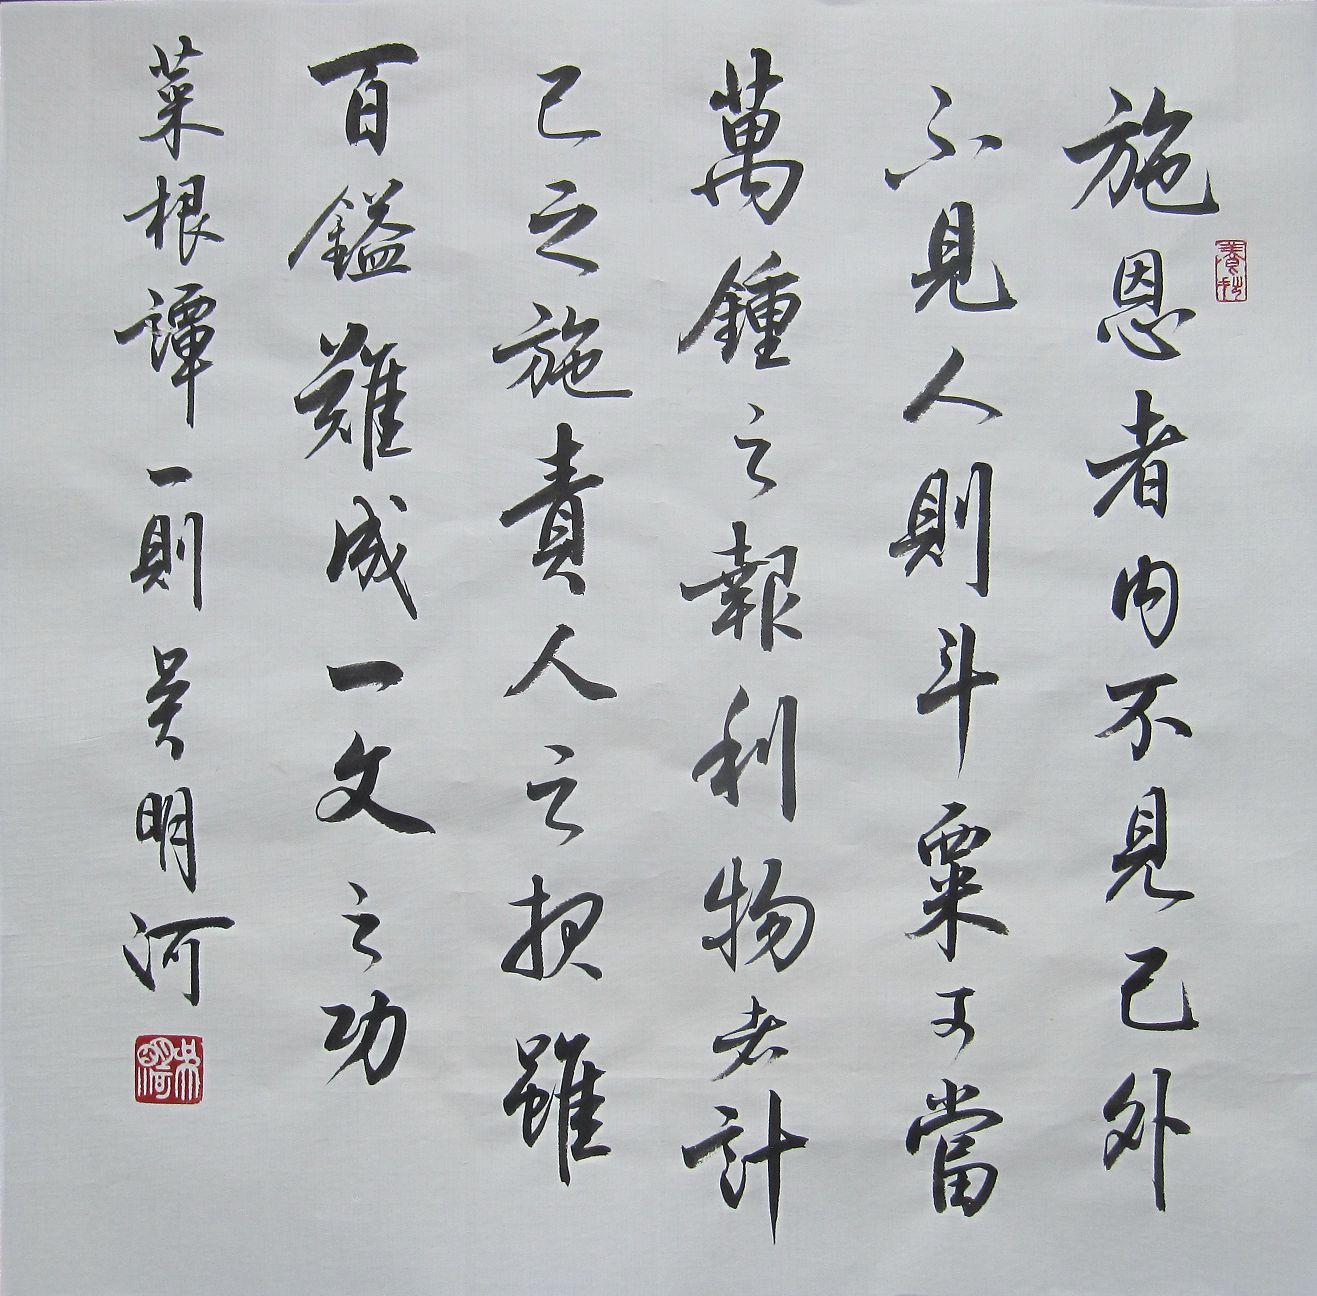 施恩者内不見己外
不見人則斗粟可當
萬鍾之報利物者計
己之施責人之报雖
百鎰難成一文之功
菜根譚一則 吴明河
吴明河